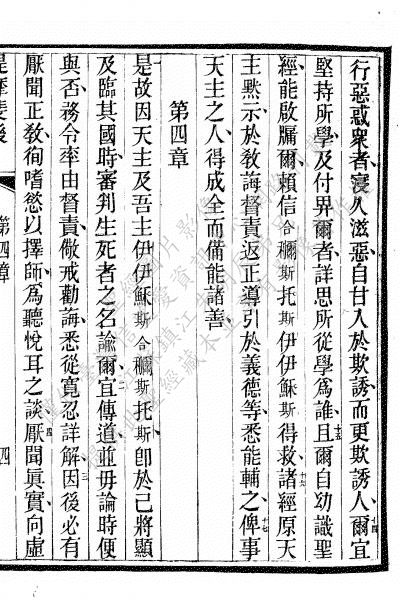 行惡惑衆者寖久滋惡自甘入於欺誘而更欺誘人十四爾宜
堅持所學及付畀爾者詳思所從學爲誰十五且爾自幼識聖
經能啟牖爾賴信合穪斯托斯伊伊穌斯得救十六諸經原天
主黙示於敎誨督責返正導引於義德等悉能輔之十七俾事
天主之人得成全而備能諸善
第四章
是故因天主及吾主伊伊穌斯合穪斯托斯卽於己將顯
及臨其國時審判生死者之名諭二爾宜傳道並毋論時便
與否務令率由督責儆戒勸誨悉從寬忍詳解三因後必有
厭聞正敎徇嗜慾以擇師爲聽悅耳之談四厭聞眞實向虛
第四章 四